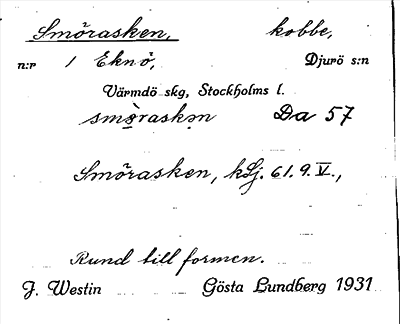 Smörasken, kobbe,
n:r 1 Eknö, Djurö s:n
Värmdö skg, Stockholms l.
smö̀raskən Da 57
Smörasken, kSj. 61.9.V.,
Rund till formen.
J. Westin Gösta Lundberg 1931